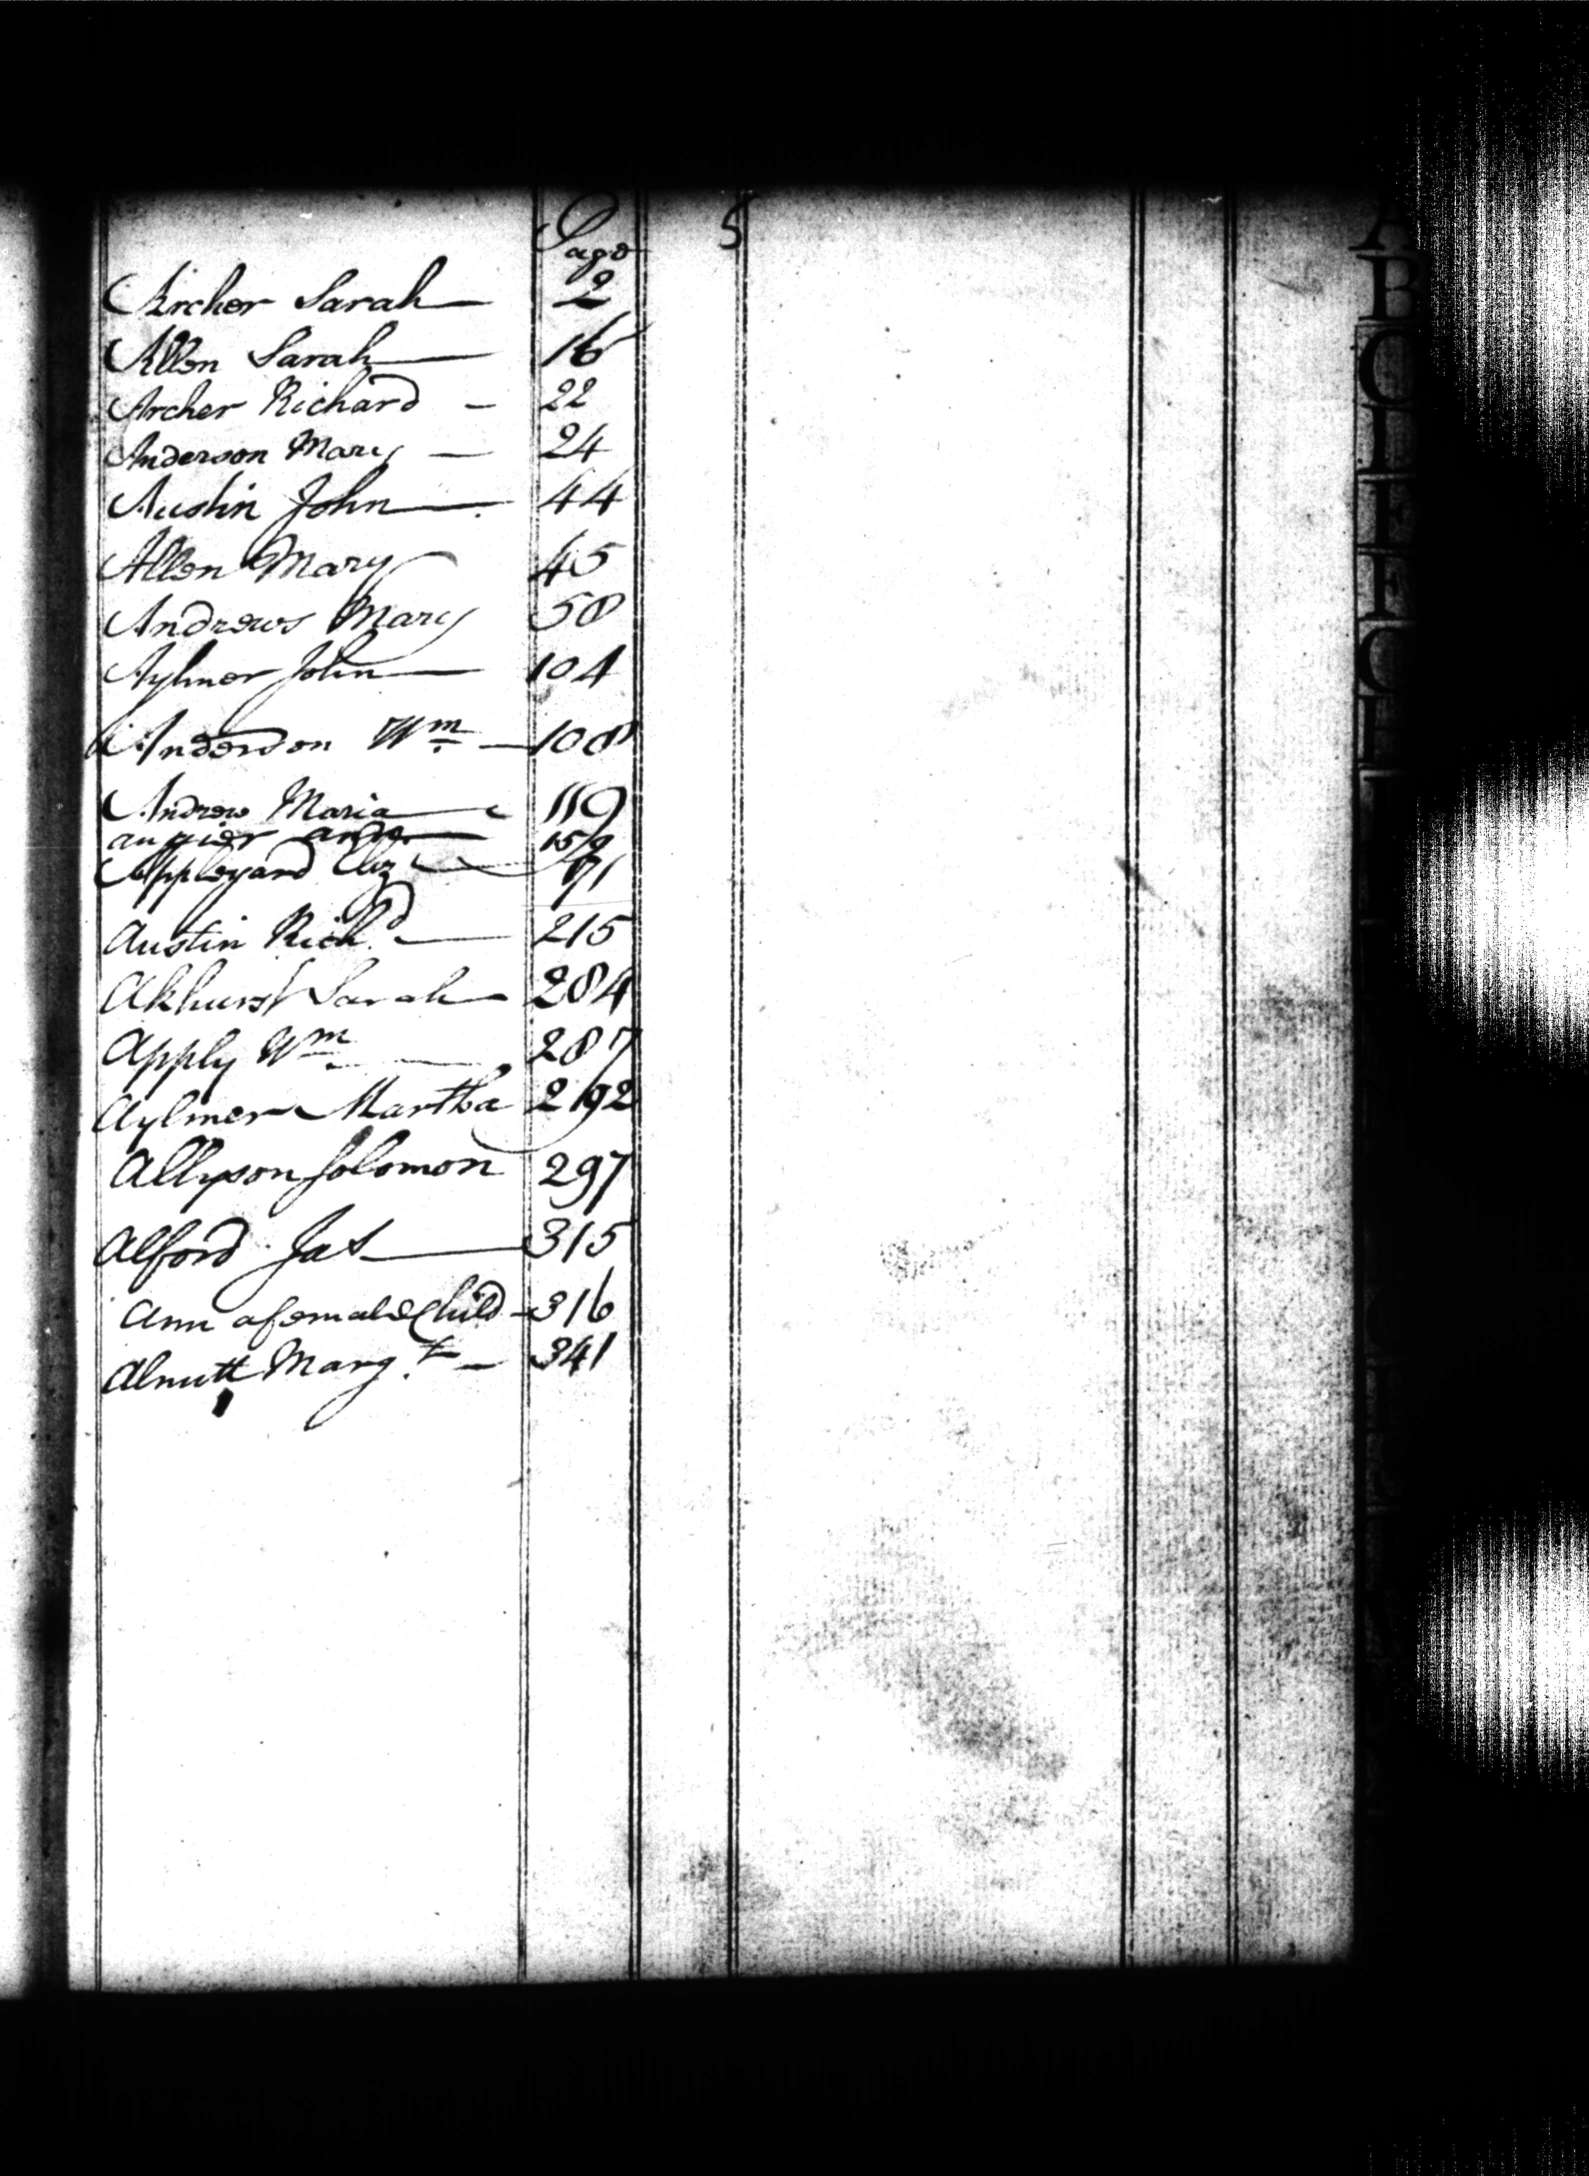 Page 5
Archer Sarah 2
Allen Sarah 16
Archer Richard 22
Anderson Mary 24
Austin John 44
Allen Mary 45
Andrews Mary 58
Aylmer John 104
Anderson Wm 108
Andrew Maria 119
Appleyard Eliz 171
Austin Richd 215
Akhurst Sarah 284
Apply Wm 287
Aylmer Martha 292
Allyson Solomon 297
Alford Jas 315
Ann a female Child 316
Alnutt Margt 341
A
B
C